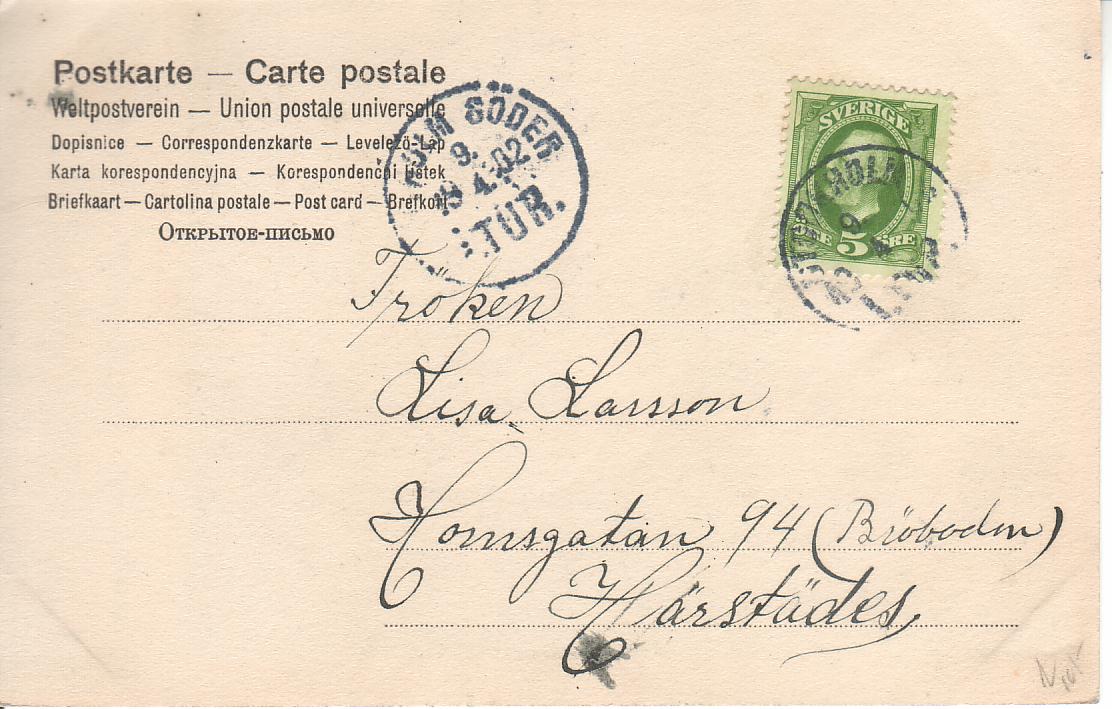 Postkarte — Carte postale
Weltpostverein — Union postale universelle
Dopisnice — Correspondenzkarte — Levelező-Lap
Karta korespondencyjna — Korespondenchi listek
Briefkaart — Cartolina postale — Post card — Brefkort
Открытое-письмо
SVERIGE
5 ÖRE
HOLM SÖDER
9.
19 4. 02
TUR.
Fröken
Lisa Larsson
Hornsgatan 94 (Bröboden)
Härstädes